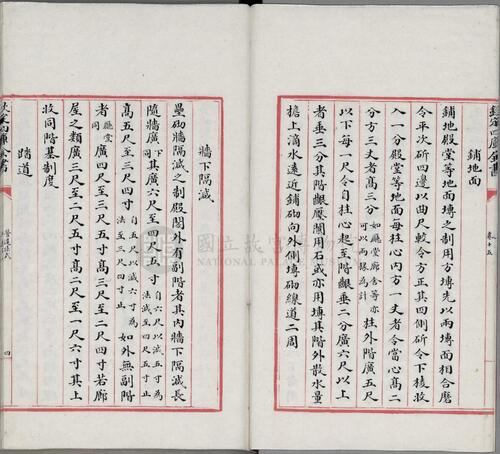 欽定四庫全書
卷十五
鋪地面
鋪地殿堂等地面塼之制用方塼先以兩塼面相合磨
令平次斫四邊以曲尺較令方正其四側斫令下棱收
入一分殿堂等地面每柱心內方一丈者令當心高二
分方三丈者高三分如廳堂廊舍等亦可以兩椽為計柱外階廣五尺
以下每一尺令自柱心起至階齦垂二分廣六尺以上
者垂三分其階齦壓闌用石或亦用塼其階外散水量
檐上滴水遠近鋪砌向外側塼砌線道二周
牆下隔減
壘砌牆隔減之制殿閣外有副階者其內牆下隔減長
隨牆廣下同其廣六尺至四尺五寸自六尺以減五寸為法減至四尺五寸止
高五尺至三尺四寸自五尺以減六寸為法至三尺四寸止如外無副階
者廳堂同廣四尺至三尺五寸高三尺至二尺四寸若廊
屋之類廣三尺至二尺五寸高二尺至一尺六寸其上
收同階基制度
踏道
欽定四庫全書
營造法式
四
國立故宮博物院
NATIONAL PALACE MUSEUM